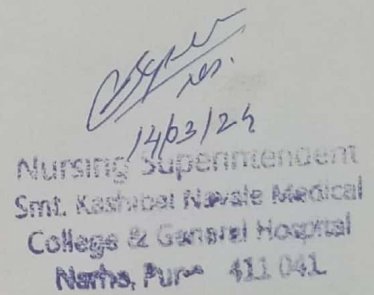 14/03/24
Nursing Superintendent
Smt. Kashibai Navale Medical
College & General Hospital
Narhe, Pune 411 041.